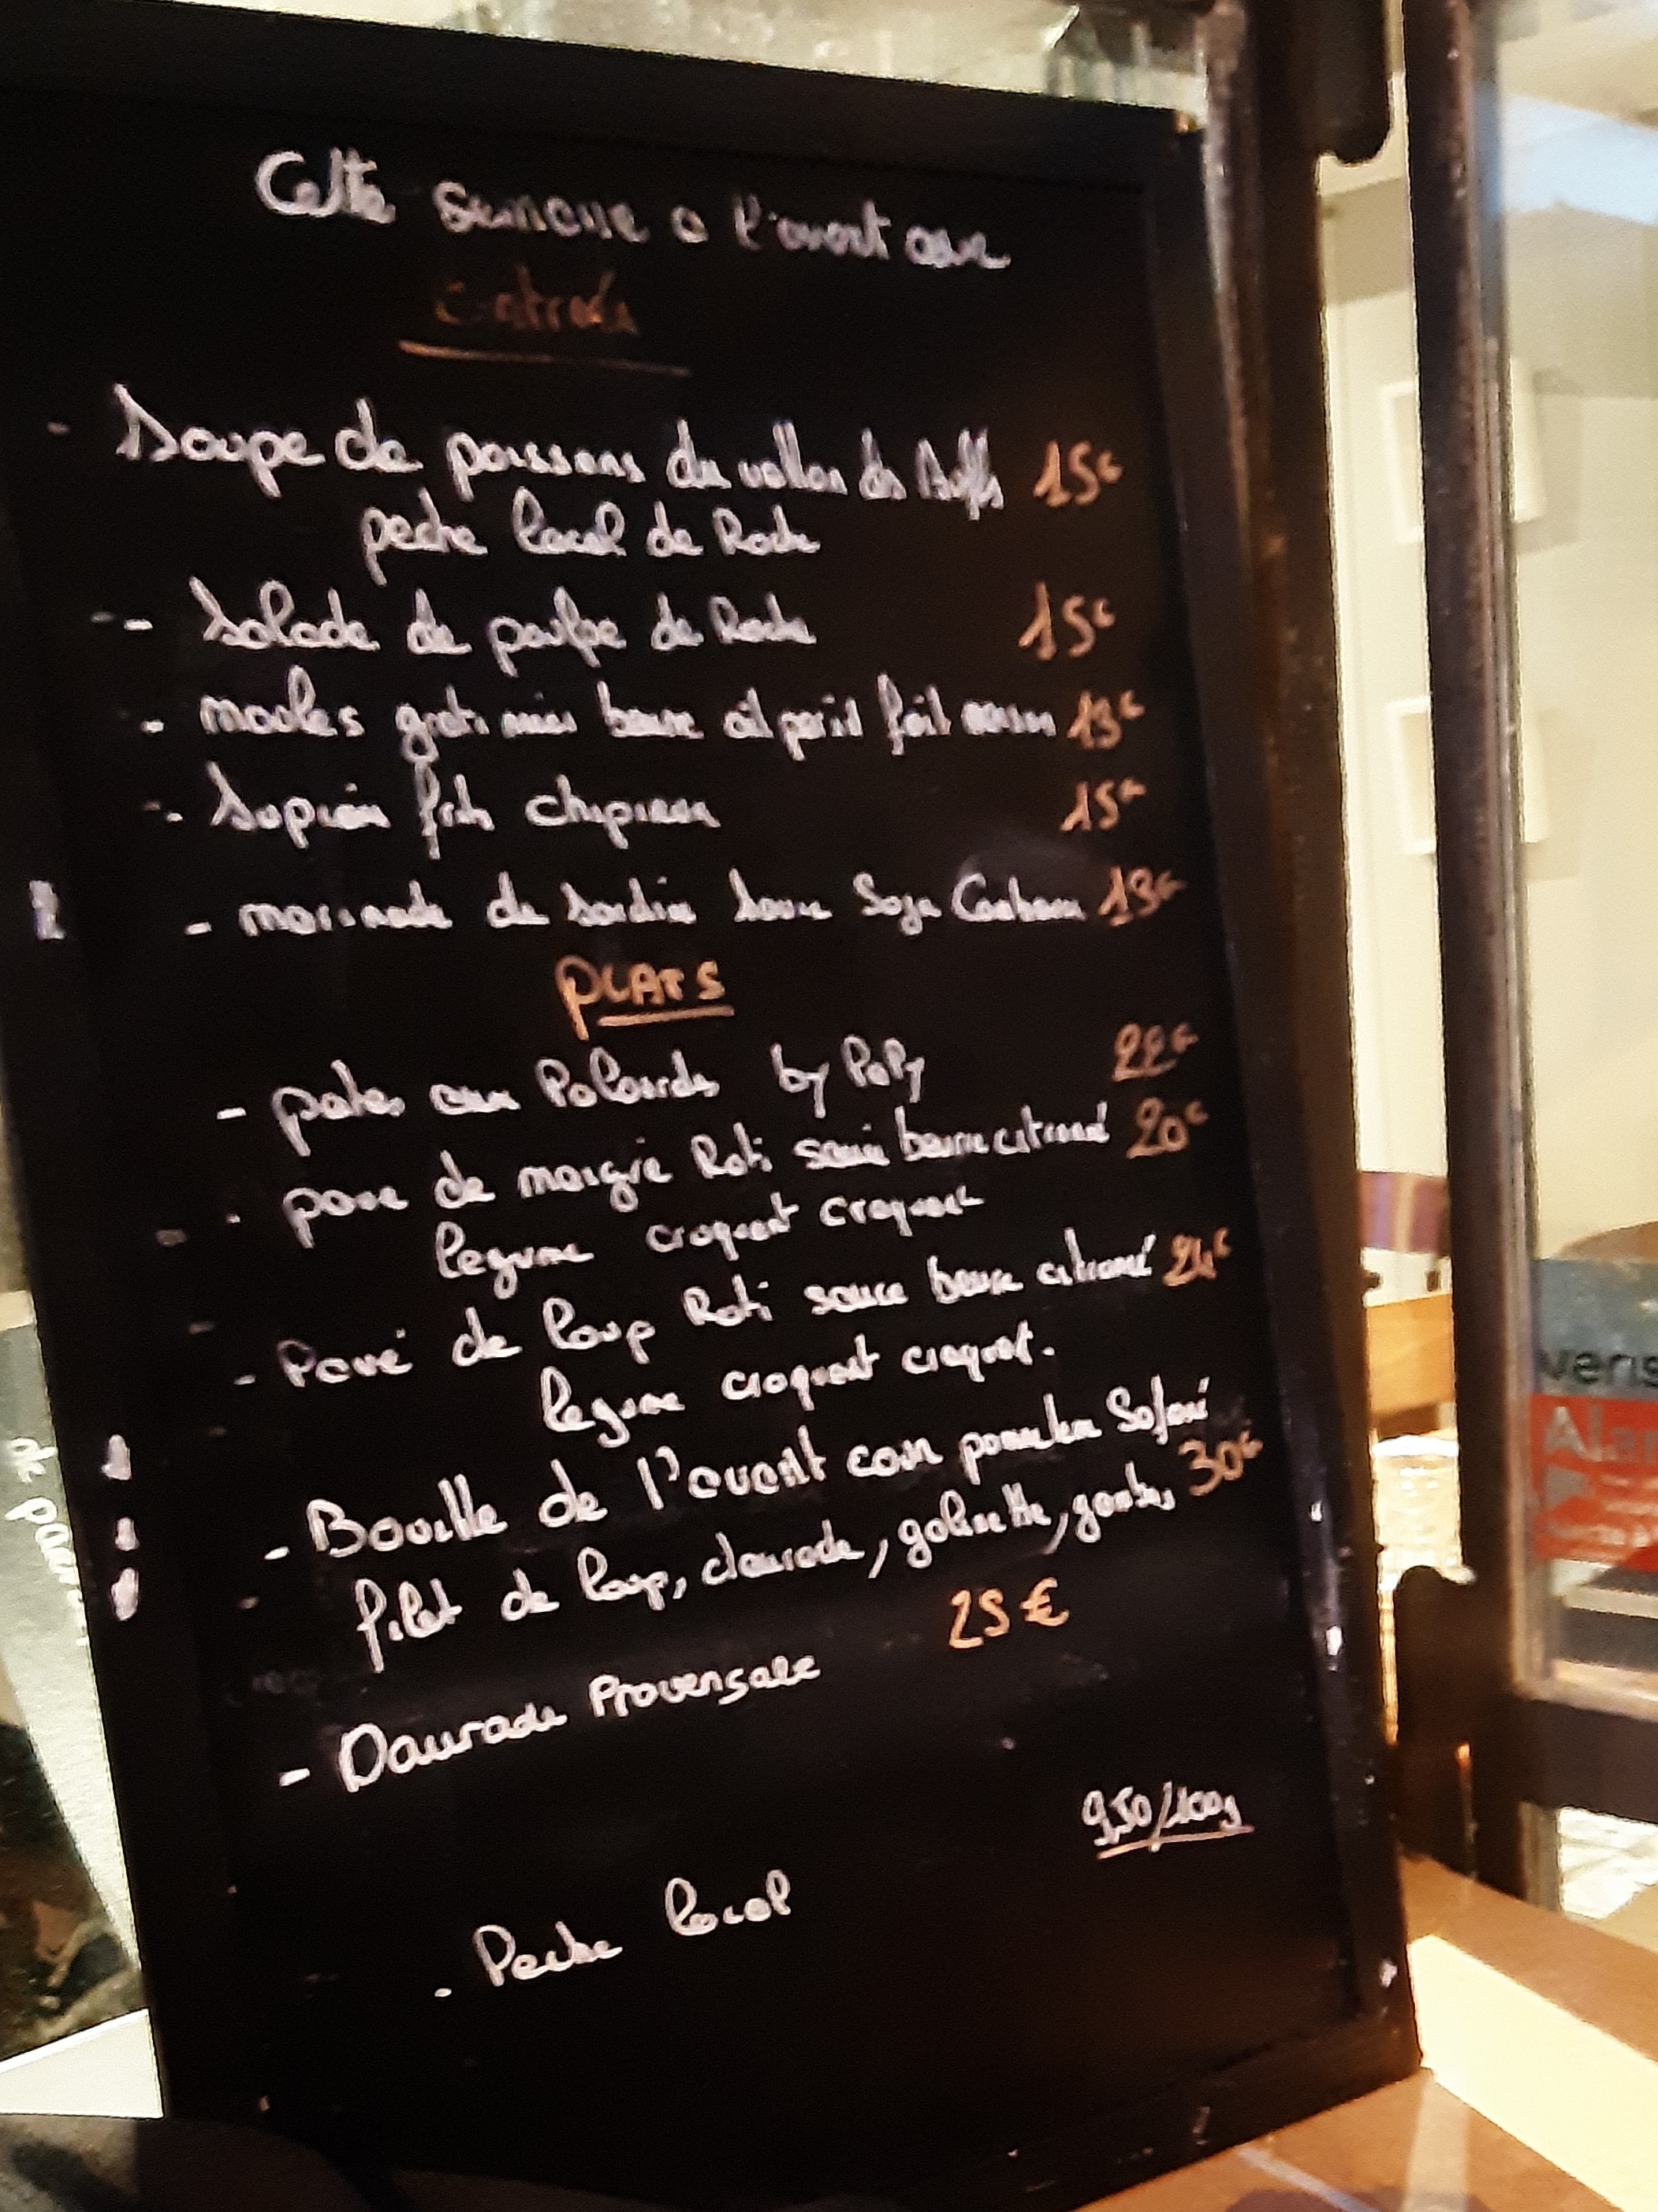 Cette semaine a l'avant cour
Entrade
- Soupe de poissons du vallon des Auffs 15€
peche local de Roche
- Salade de poulpe de Roche 15€
- moules gratiniées beurre ail persil fait maison 13€
- Supion frits chipiron 15€
- marinade de sardine sauce Soja Coriandre 13€
PLATS
- pates aux Palourdes by PoPy 22€
- pave de maigre Roti sauce beurre citronné 20€
legume croquant croquant
- Pavé de loup Roti sauce beurre citronné 24€
legume croquant croquant.
- Bouille de l'avant coin pomme de terre Safrané
filet de loup, daurade, galinette, gambas 30€
- Daurade Provensale 25€
9,50/100g
- Peche local
de
veris
Ala